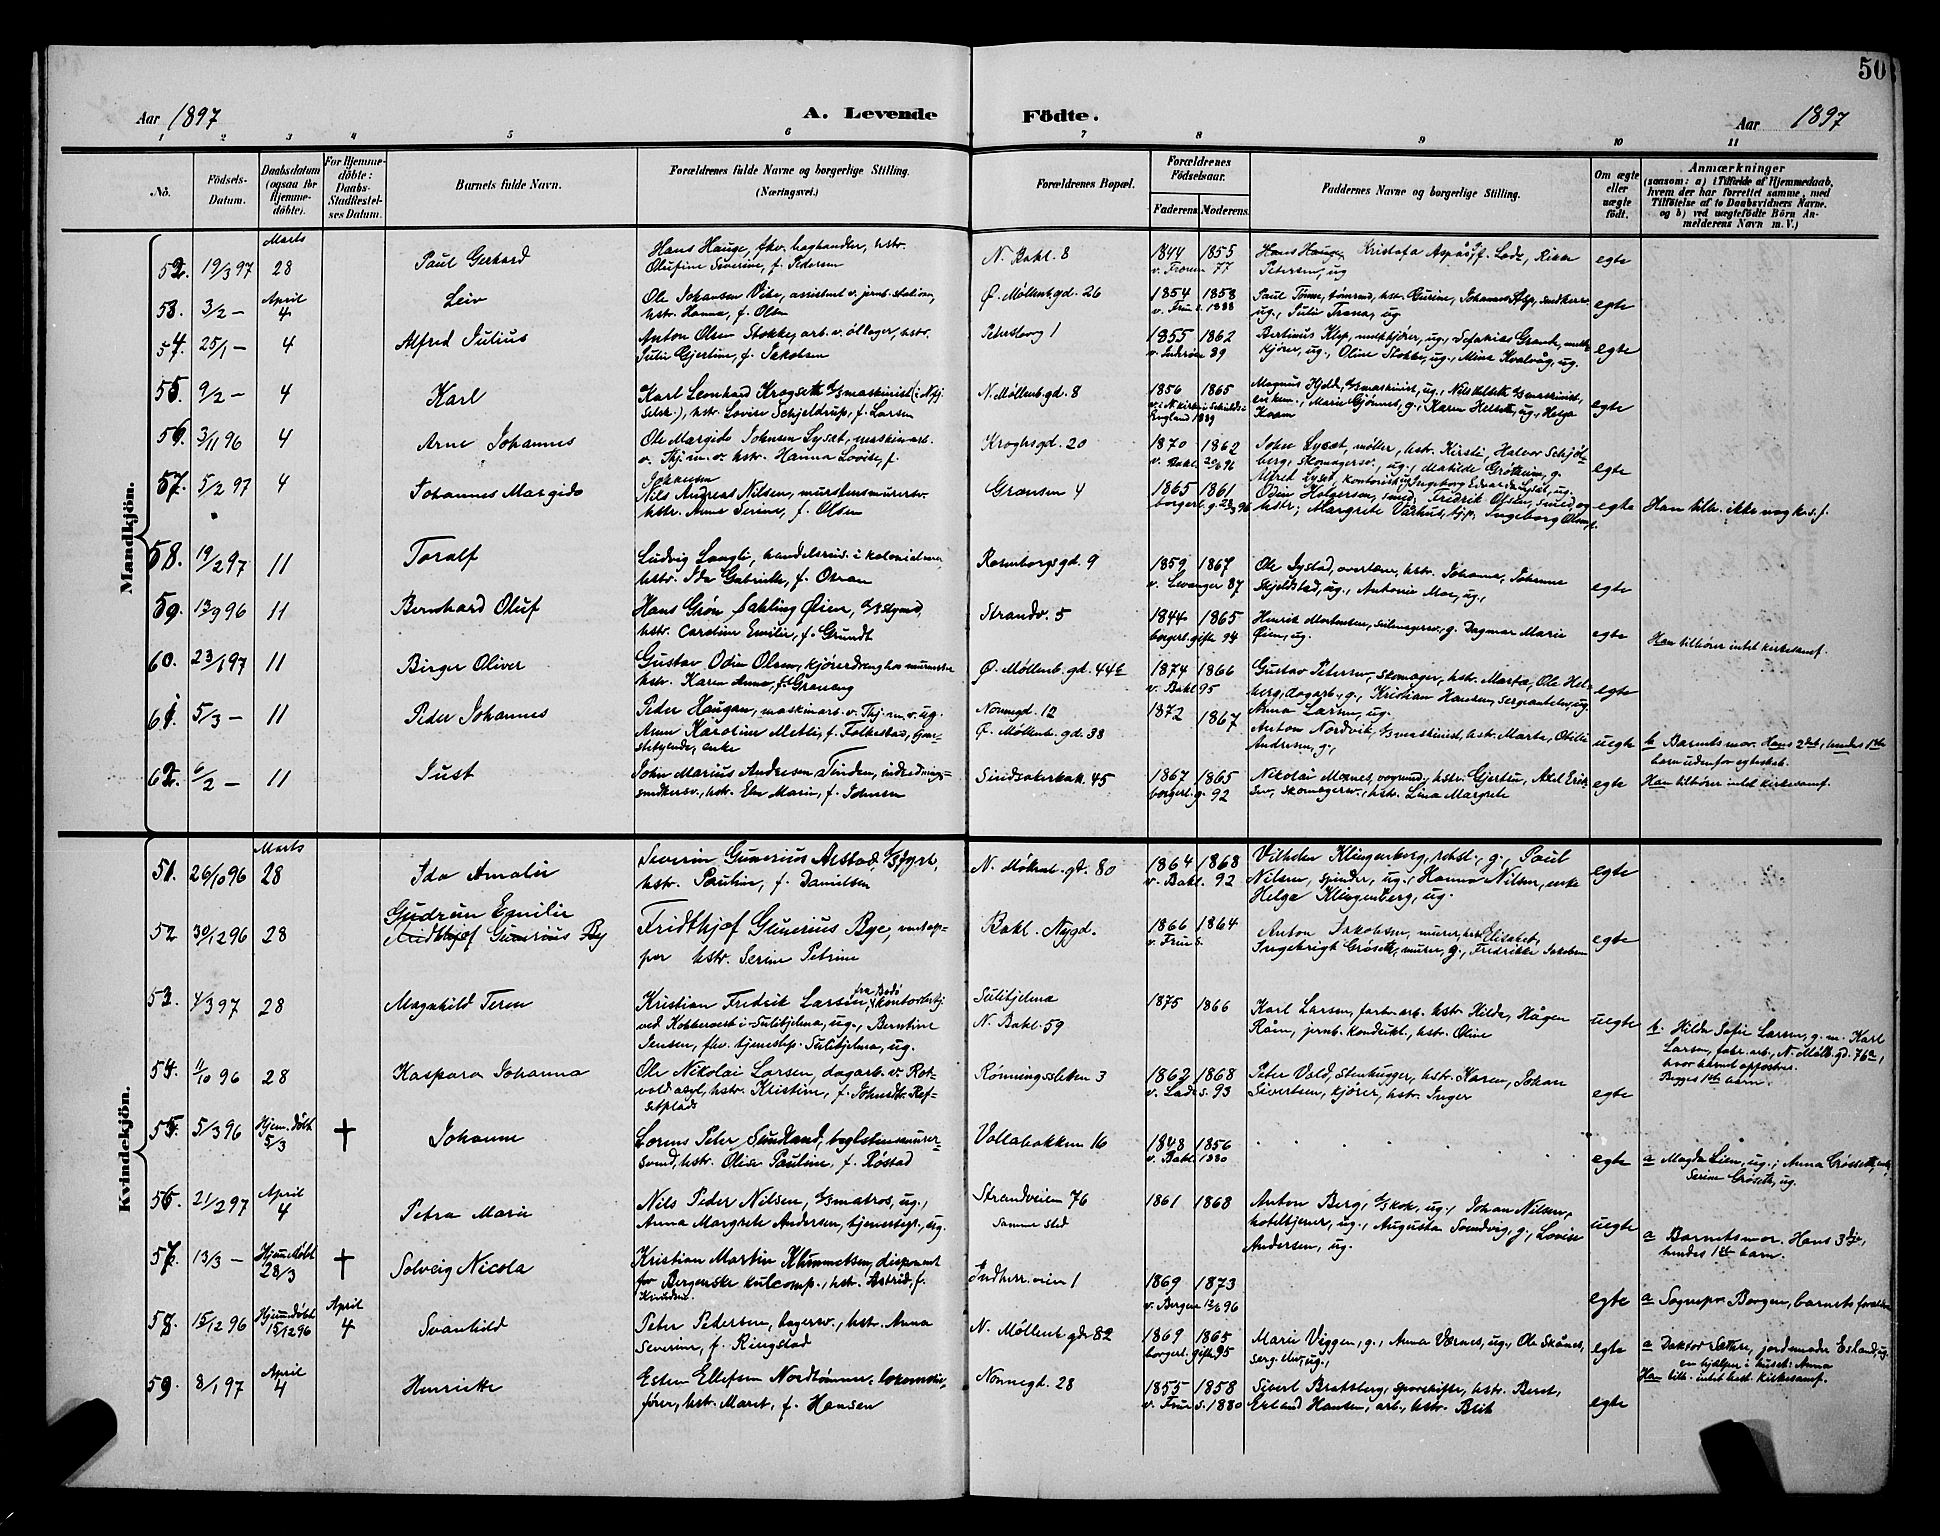 50
Aar 1897
A. Levende Födte.
Aar 1897
1 2 3 4 5 6 7 8 9 10 11
No.
Födsels-Datum.
Daabsdatum (ogsaa for Hjemme-döbte).
For Hjemme-döbte: Daabs-Stadfæstel-ses Datum.
Barnets fulde Navn.
Forældrenes fulde Navne og borgerlige Stilling. (Næringsvei.)
Forældrenes Bopæl.
Forældrenes Födselsaar.
Faderens. Moderens.
Faddernes Navne og borgerlige Stilling.
Om ægte eller uægte födt.
Anmærkninger
(saasom: a) i Tilfælde af Hjemmedaab, hvem der har forrettet samme, med Tilföielse af to Daabsvidners Navne. og b) ved uægtefödte Börn An-melderens Navn m. V.)
Mandkjön.
Marts
52. 19/3 97 28 Paul Gerhard
Hans Hauge, fhv. boghandler, hstr.
Olufine Severine, f. Pedersen
N. Bakl. 8
1844 1855
77
Hans Hauge, Kristofa Aspås, f. Lade, Rikka
Petersen, ug
egte
53. 3/2 – April 4 Leiv
Ole Johansen Vike, assistent v. jernb. station,
hstr. Hanna, f. Olsen
Ø. Møllenb. gd. 26
1854 1858
v. Frue s. 1888
Paul Tønne, tømrmd, hstr. Gurine, Johannes Alsp, snedkersv.
ug., Julie Trana, ug.
egte
54. 25/1 – 4 Alfred Julius
Anton Olsen Stokke, arb. v. øllager, hstr.
Julie Gjertine, f. Jakobsen
Petersborg 1
1855 1862
v. Inderøen 89
Bertinus Klep, melkekjører, ug., Sefanias Grande, melk-
kjører, ug., Oline Stokke, ug., Mina Kvalvåg, ug.
egte
55. 9/2 – 4 Karl
Karl Leonhard Krogseth d/s maskinist (i Nfj.
selsk.), hstr. Lovise Schjeldrup, f. Larsen
N. Møllenb. gd. 8
1856 1865
England 1889
Magnus Hjelde, d/s maskinist, ug., Nils Helseth d/s maskinist,
enkem., Marie Gjønnes, g., Karen Helseth, ug., Helga
Kvam
egte
56. 3/11 96 4 Arne Johannes
Ole Margido Johnsen Lysæt, maskinarb.
v. Thj. m. v. hstr. Hanna Lovise, f.
Johansen
Kroghsgd. 20
1870 1862
v. Bakl. 20/6 96
John Lysæt, møller, hstr. Kirsti, Halvor Schjøl-
berg, skomagersv., ug., Matilde Grøtheim, g.
Alfred Lysæt, kontorist, ug., Ingeborg Edvarda Lysæt, ug.
egte
57. 5/2 97 4 Johannes Margido
Nils Andreas Nilsen, murstensmurersv.
hstr. Anne Serine, f. Olsen
Grænsen 4
1865 1861
borgerl. g. 96
Odin Holgersen, smed, Fredrik Olsen, smed, og
hstr., Margrete Varhus, tjp, Ingeborg Olsen,
egte
Han tilh. ikke nog k.s.f.
58. 19/2 97 11 Toralf
Ludvig Langli, handelsreis. i kolonialvarer
hstr. Ida Gabrielle, f. Osran
Rosenborgsgd. 9
1859 1867
v. Levanger 87
Ole Systad, overlærer, hstr. Johanna, Johanne
Skjeldstad, ug., Antonie Moe, ug.,
egte
59. 13/9 96 11 Bernhard Oluf
Hans Grøn Dahling Øien, d/s styrmd,
hstr. Caroline Emilie, f. Grundt
Strandv. 5
1844 1865
borgerl. gifte 94
Henrik Mortensen, seilmagersv., g. Dagmar Marie
Øien, ug.
egte
Han tilhører intet kirkesamf.
60. 23/1 97 11 Birger Oliver
Gustav Odin Olsen, kjørerdreng hos murmester
hstr. Karen Anna, f. Graneng
Ø. Møllenb. gd. 44c
1874 1866
v. Bakl. 95
Gustav Petersen, skomager, hstr. Marta, Ole Hel-
berg, dagarb., g., Kristian Hansen, sergeantelev, ug
Anna Larsen, ug.
egte
61. 5/3 – 11 Peder Johannes
Peder Haugan, maskinarb. v. Thj. m. v. ug.
Anne Karoline Metli, f. Folkestad,
enke
Nonnegd. 12
Ø. Møllenb. gd. 38
1872 1867
Anton Nordvik, d/s maskinist, hstr. Marta, Otilie
Andresen, g.,
uegte
b Barnets mor. Hans 2det, hendes 1ste
barn udenfor egteskab.
62. 6/2 – 11 Just
John Marius Andresen Tinden, indrednings-
snedkersv., hstr. Eva Marie, f. Johnsen
Sindsakerbak. 45
1867 1865
borgerl. g. 92
Nikolai Mænes, vognmd, hstr. Gjertru, Axel Erik-
sen, skomagersv., hstr. Lina Margrete
egte
Han tilhører intet kirkesamf.
Kvindekjön.
Marts
51. 26/10 96 28 Ida Amalie
Severin Gunerius Alstad, d/s fyrb.,
hstr. Pauline, f. Danielsen
N. Møllenb. gd. 80
1864 1868
v. Bakl. 92
Vilhelm Klingenberg, rebsl., g., Paul
Nilsen, spinder, ug., Hanna Nilsen, enke
Helga Klingenberg, ug.
egte
52 30/12 96 28 Gudrun Emilie
Fridthjof Gunerius By
Fridthjof Gunerius Bye,
hstr. Serine Petrine
Bakl. Nygd.
1866 1864
v. Frue s.
Anton Jakobsen, murer, hstr. Elisabet,
Ingebrigt Grøseth, murer, g., Fredrikke Jakobsen
egte
53. 4/3 97 28 Magnhild Teresa
Kristian Fredrik Larsen, fra Bodø kontorbetj.
ved Kobberverk i Sulitjelma, ug., Berntine
Jensen, fhv. tjenestep. Sulitjelma, ug.
Sulitjelma
N. Bakl. 59
1875 1866
Karl Larsen, fabr. arb. hstr. Hilda, Hågen
Råen, jernb. kondukt., hstr. Oline
uegte
b. Hilda Sofie Larsen, g. m. Karl
Larsen, fabr. arb., N. Møllb. gd. 76a,
hvor barnet opfostres.
Begges 1ste barn.
54. 11/10 96 28 Kaspara Johanna
Ole Nikolai Larsen, dagarb. v. Rot-
vold asyl, hstr. Kristine, f. Johnsdtr. Ref-
setplads
Rønningsletten 3
1862 1868
v. Lade s. 93
Peter Vold, stenhugger, hstr. Karen, Johan
Sivertsen, kjører, hstr. Inger
egte
55. 5/3 96 Hjem. døbt 5/3 † Johanne
Lorens Peter Sundland, teglstensmurer-
svend, hstr. Olise Pauline, f. Røstad
Vollabakken 16
1848 1856
v. Bakl. 1880
egte
a Magda Lien, ug., Anna Grøseth, enke
Serine Grøseth, ug.
56. 21/2 97 April 4 Petra Marie
Nils Peder Nilsen, d/s matros, ug.,
Anna Margrete Andersen, tjenestep., ug.
Strandveien 76
Samme sted
1861 1868
Anton Berg, d/s kok, ug., Johan Nilsen,
hoteltjener, ug., Augusta Sundvig, g., Lovise
Andersen, ug.
uegte
a Barnets mor. Hans 3dje,
hendes 1ste barn.
57. 13/3 – Hjemmedøbt 28/3 † Solveig Nicola
Kristian Martin Klemmetsen, disponent
for Bergenske kulcomp., hstr. Astrid, f.
Knudsen
Indherr. veien 1
1869 1873
v. Bergen 12/6 96
egte
a Sognepr. Borgen, barnets forældre
58. 15/12 96 Hjemmedøbt 15/12 96 April 4 Svanhild
Peter Petersen, bagersv., hstr. Anna
Severine, f. Ringstad
N. Møllenb. gd. 82
1869 1865
borgerl. gifte 95
Marie Viggen, g., Anna Værnes, ug., Ole Skånes,
serg. elev, ug.,
egte
a Doktor Sættre, jordemoder Esland, ug.
en hjælper i huset: Anna
Han tilh. intet best. kirkesamf.
59. 8/1 97 April 4 Henriette
Esten Ellefsen Nordtømme, lokomotiv-
fører, hstr. Maret, f. Hansen
Nonnegd. 28
1855 1858
v. Frue s. 1880
Sivert Bratsberg, sporskifter, hstr. Beret,
Erland Hansen, arb., hstr. Brit
egte